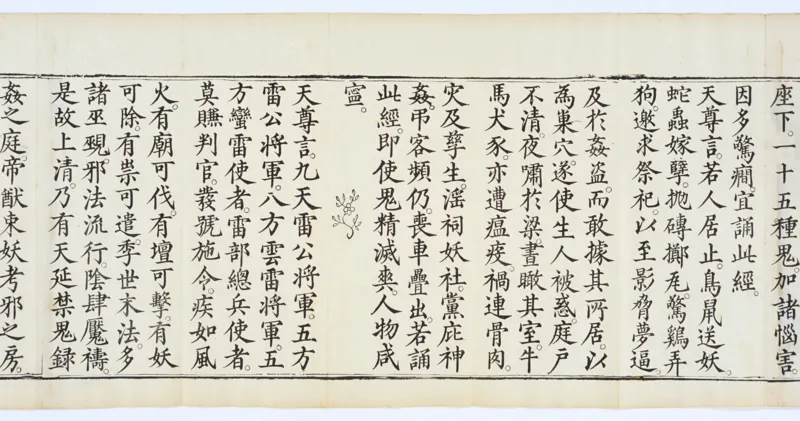 座下。一十五種鬼。加諸惱害。
因多驚癇。宜誦此經。
天尊言。若人居止。鳥鼠送妖。
蛇蟲嫁孽。拋磚擲瓦。驚鷄弄
狗。邀求祭祀。以至影脅夢逼。
及於姦盜。而敢據其所居。以
為巢穴。遂使生人被惑。庭戶
不清。夜嘯於梁。晝瞰其室。牛
馬犬豕。亦遭瘟疫。禍連骨肉。
灾及孳生。滛祠妖社。黨庇神
姦。弔客頻仍。喪車疊出。若誦
此經。即使鬼精滅爽。人物咸
寧。
天尊言。九天雷公將軍。五方
雷公將軍。八方雲雷將軍。五
方蠻雷使者。雷部總兵使者。
莫賺判官。發號施令。疾如風
火。有廟可伐。有壇可擊。有妖
可除。有祟可遣。季世末法。多
諸巫覡。邪法流行。陰肆魘禱。
是故上清。乃有天延禁鬼録
姦之庭。帝猷束妖考邪之房。